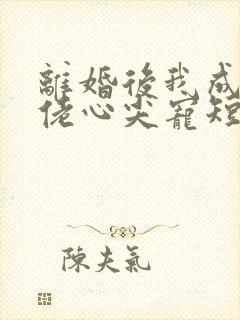 離婚後我成
佬心尖寵短
陳夫氣